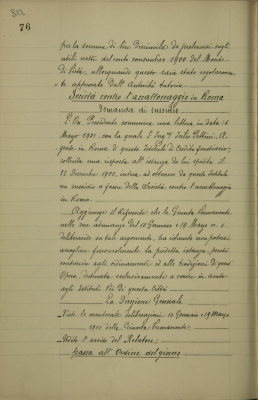 76
per la somma di lire Diecimila da prelevarsi sugli
utili netti del 2º semestre 1900 del Monte
di Pietà, allorquando questo sarà stato regolarmen-
te approvato dall'Autorità tutoria.
Società contro l'accattonaggio in Roma
Domanda di sussidio
Il Presidente comunica una lettera in data 16
Marzo 1901, con la quale l' A-
gente in Roma di questo Istituto di Credito fondiario,
sollecita una risposta all'istanza da lui spedita il
22 Dicembre 1900, intesa ad ottenere da questo Istituto
un sussidio a favore della Società contro l'accattonaggio
in Roma.
Aggiunge il Referente che la Giunta Permanente
nelle sue adunanze del 10 Gennaio e 19 Marzo
deliberando su tale argomento, ha ritenuto non potersi
accogliere favorevolmente la predetta istanza, perchè
contraria agli ordinamenti ed alle tradizioni di quest'
Opera destinata esclusivamente a venire in aiuto
agli Istituti Pii di questa Città
La Direzione Generale
Viste le menzionate deliberazioni 10 Gennaio e 19 Marzo
1901 della Giunta Permanente:
Udito l'avviso del Relatore:
passa all'Ordine del giorno